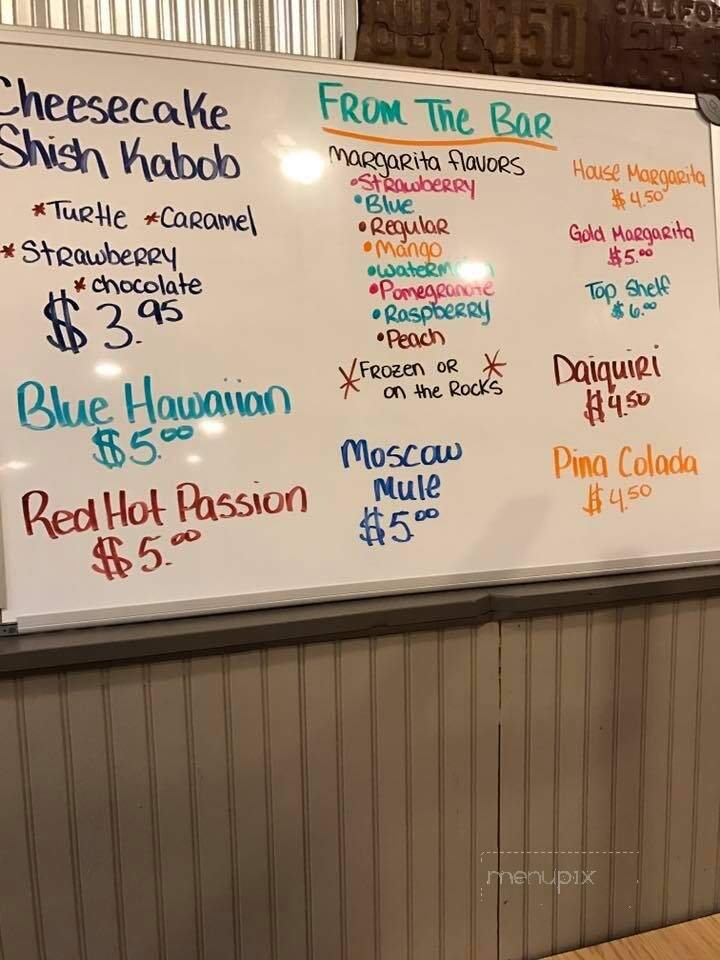 Cheesecake
Shish Kabob
*Turtle *Caramel
*Strawberry
*chocolate
$3.95
Blue Hawaiian
$5.00
Red Hot Passion
$5.00
From The Bar
Margarita flavors
•Strawberry
•Blue
•Regular
•Mango
•Watermelon
•Pomegranate
•Raspberry
•Peach
*Frozen or *
on the Rocks
Moscow
Mule
$5.00
House Margarita
$4.50
Gold Margarita
$5.00
Top Shelf
$6.00
Daiquiri
$4.50
Pina Colada
$4.50
menupix